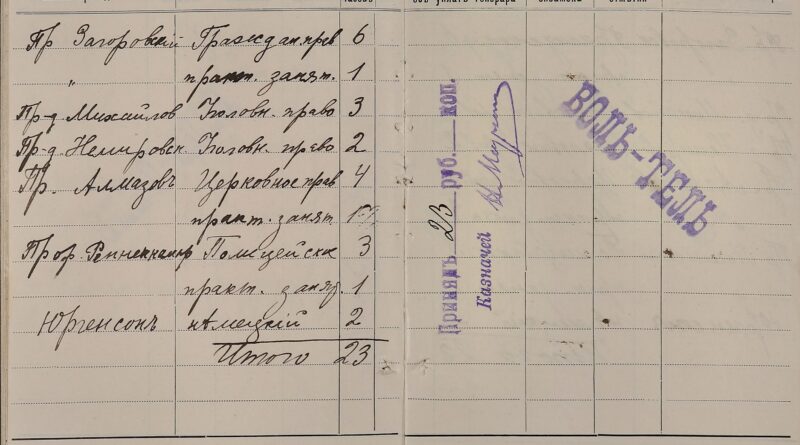 Пр. Загоровскій Граждан прав 6
" практ. занят. 1
Пр-д. Михайлов Уголовн. право 3
Пр-д Немировск. Уголовн. право 2
Пр. Алмазовъ Церковное прав 4
практ. занят 1
Проф. Полицейск 3
практ. занят. 1
Юргенсонъ нѣмецкій 2
Итого 23
Принялъ 23 руб. коп.
Казначей
ВОЛЬ-ТЕЛЬ